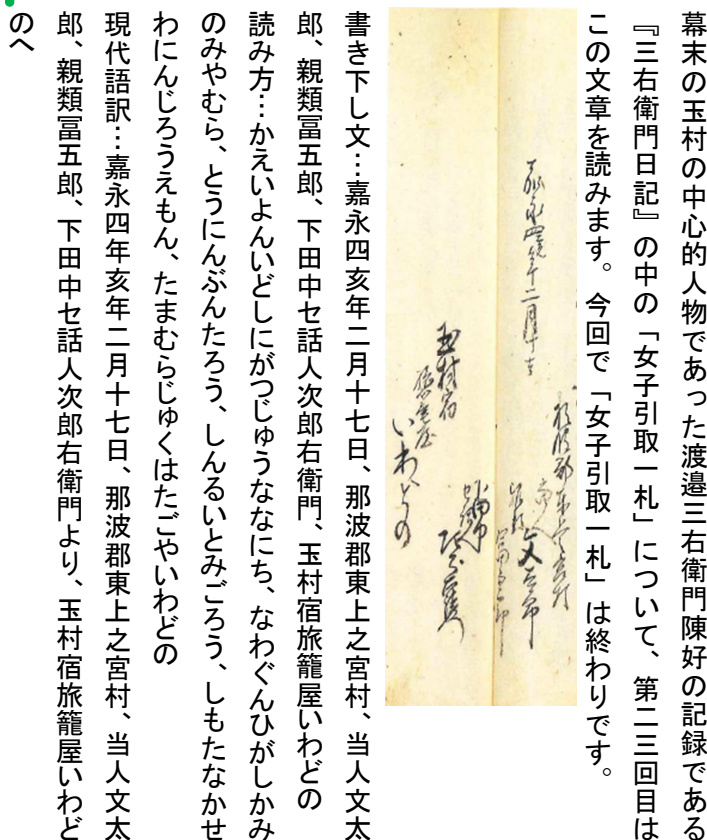 幕末の玉村の中心的人物であった渡邉三右衛門陳好の記録である
『三右衛門日記』の中の「女子引取一札」について、第二三回目は
この文章を読みます。今回で「女子引取一札」は終わりです。
嘉永四亥年二月十七日
那波郡東上之宮村
当人
文太郎
親類
冨五郎
下田中
セ話人
次郎右衛門
玉村宿
旅籠屋
いわとの
書き下し文…嘉永四亥年二月十七日、那波郡東上之宮村、当人文太
郎、親類冨五郎、下田中セ話人次郎右衛門、玉村宿旅籠屋いわどの
読み方…かえいよんいどしにがつじゅうななにち、なわぐんひがしかみ
のみやむら、とうにんぶんたろう、しんるいとみごろう、しもたなかせ
わにんじろうえもん、たまむらじゅくはたごやいわどの
現代語訳…嘉永四年亥年二月十七日、那波郡東上之宮村、当人文太
郎、親類冨五郎、下田中セ話人次郎右衛門より、玉村宿旅籠屋いわど
のへ